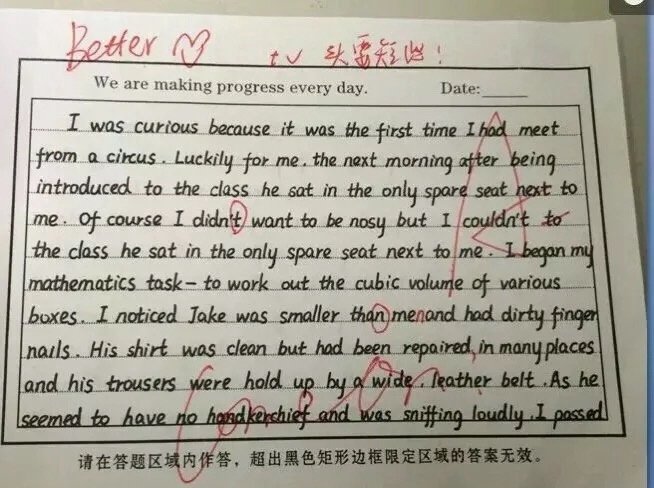 Better
t v 头要短些!
We are making progress every day. Date:
I was curious because it was the first time I had meet
from a circus. Luckily for me, the next morning after being
introduced to the class he sat in the only spare seat next to
me. Of course I didn't want to be nosy but I couldn't to
the class he sat in the only spare seat next to me. I began my
mathematics task - to work out the cubic volume of various
boxes. I noticed Jake was smaller than men and had dirty finger
nails. His shirt was clean but had been repaired, in many places
and his trousers were hold up by a wide, leather belt. As he
seemed to have no handkerchief and was sniffing loudly. I passed
请在答题区域内作答，超出黑色矩形边框限定区域的答案无效。